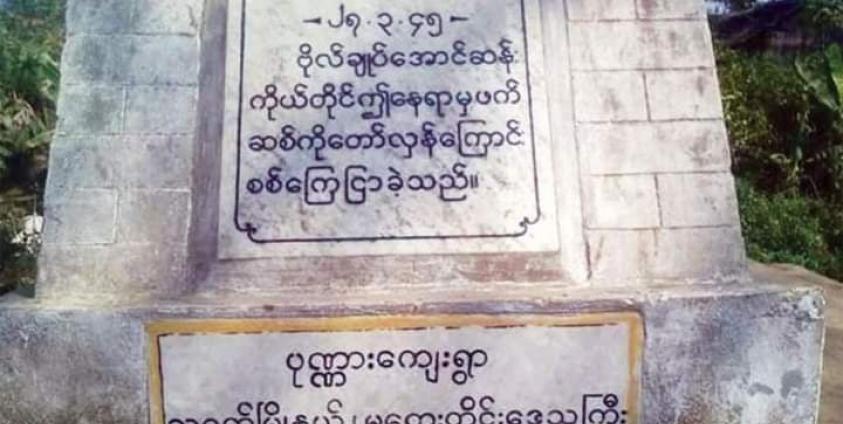 - ၂၇.၃.၄၅ -
ဗိုလ်ချုပ်အောင်ဆန်း
ကိုယ်တိုင်ဤနေရာမှဖက်
ဆစ်ကိုတော်လှန်ကြောင်း
စစ်ကြေငြာခဲ့သည်။
ပုဏ္ဏားကျေးရွာ
သရက်မြို့နယ်၊ မကွေးတိုင်းဒေသကြီး